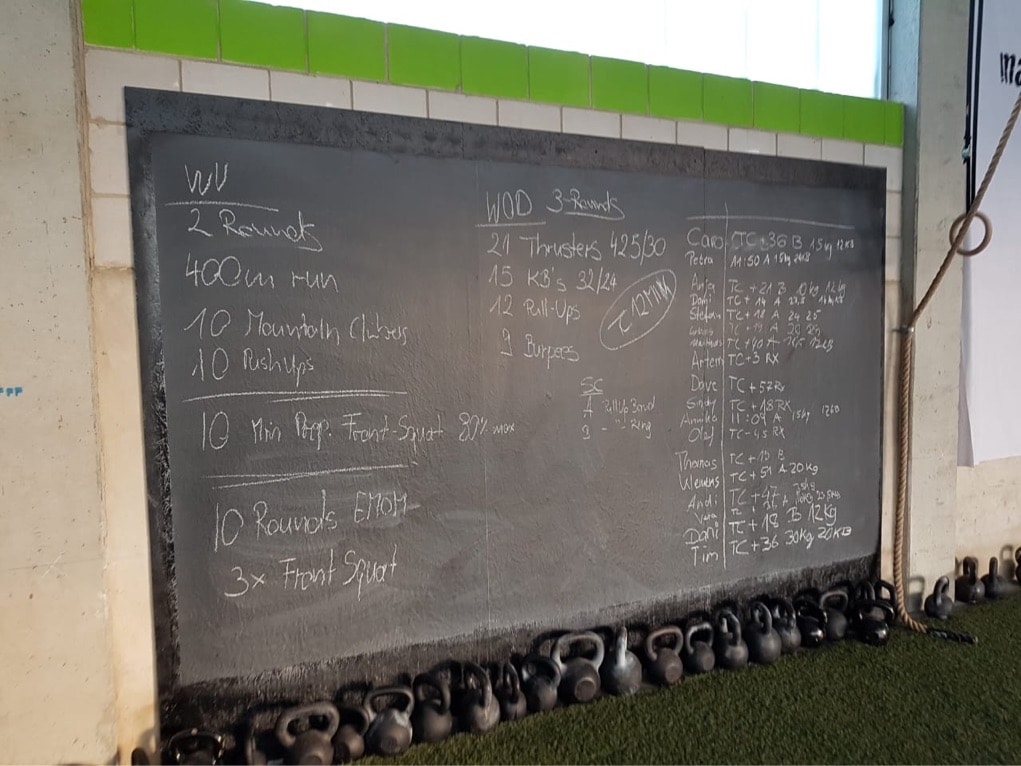 WU
2 Rounds
400m run
10 Mountain Climbers
10 PushUps
10 Min Prep. Front-Squat 80% max
10 Rounds EMOM
3x Front Squat
WOD 3-Rounds
21 Thrusters 42,5/30
15 KB's 32/24
12 Pull-Ups
9 Burpees
TC 12 MIN
SC
A PullUp Band
Ring
Caro TC+36 B 15kg 12KB
Petra 11:50 A 15kg
Anja TC+21 B 10kg 12kg
Dani TC+14 A
Stefan TC+18 A 24 25
A 30kg
TC+40 A 12KB
Artem TC+3 RX
Dave TC+57 Rx
Sindy TC+18 RX
Annika 11:09 A 15kg 12KB
Olaf TC-45 RX
Thomas TC+19 B
Clemens TC+51 A 20kg
Andi TC+47
Dani TC+18 B 12kg
Tim TC+36 30kg 20KB
ma